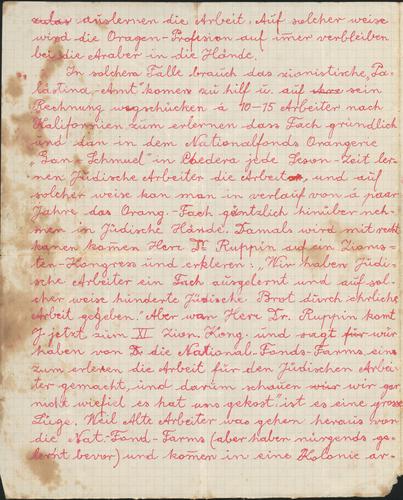 auslernen die Arbeit. Auf solcher weise
wird die Oragen-Profesion auf im̄er verbleiben
bei die Araber in die Hände.
In solchem Falle brauch das zionistische „Pa-
lästina-Amt" kom̄en zu hilf u. auf sein
Rechnung wegschücken á 10-15 Arbeiter nach
Kalifornien zum erlernen dass Fach gründlich
und dan in dem Nationalfonds Orangerie
„Gan Schmuel" in Chedera jede Seson-Zeit ler-
nen Jüdische Arbeiter die Arbeit, und auf
solcher weise kan man in verlauf von á paar
Jahre das Orang-Fach gäntzlich hinüber neh-
men in Jüdische Hände. Damals wird mit recht
kanen kom̄en Herr Dr Ruppin auf ein Zionis-
ten-Kongress und erkleren: „Wir haben Jüdi-
sche Arbeiter ein Fach ausgelernt und auf sol-
cher weise hünderte Jüdische Brot dürch ehrliche
Arbeit gegeben." Aber wan Herr Dr. Ruppin komt
jetzt zum XI Zion. Kong. und sagt für wir
haben von die National-Fonds-Farms, eins
zum erleren die Arbeit für den Jüdischen Arbei-
ter gemacht, und darüm schauen wir gar
nicht wiefiel es hat uns gekost" ist es eine grosse
Lüge. Weil Alte Arbeiter was gehen heraus von
die Nat.-Fond-Farms (aber haben nürgends ge-
lernt bevor) und kom̄en in eine Kolonie ar-